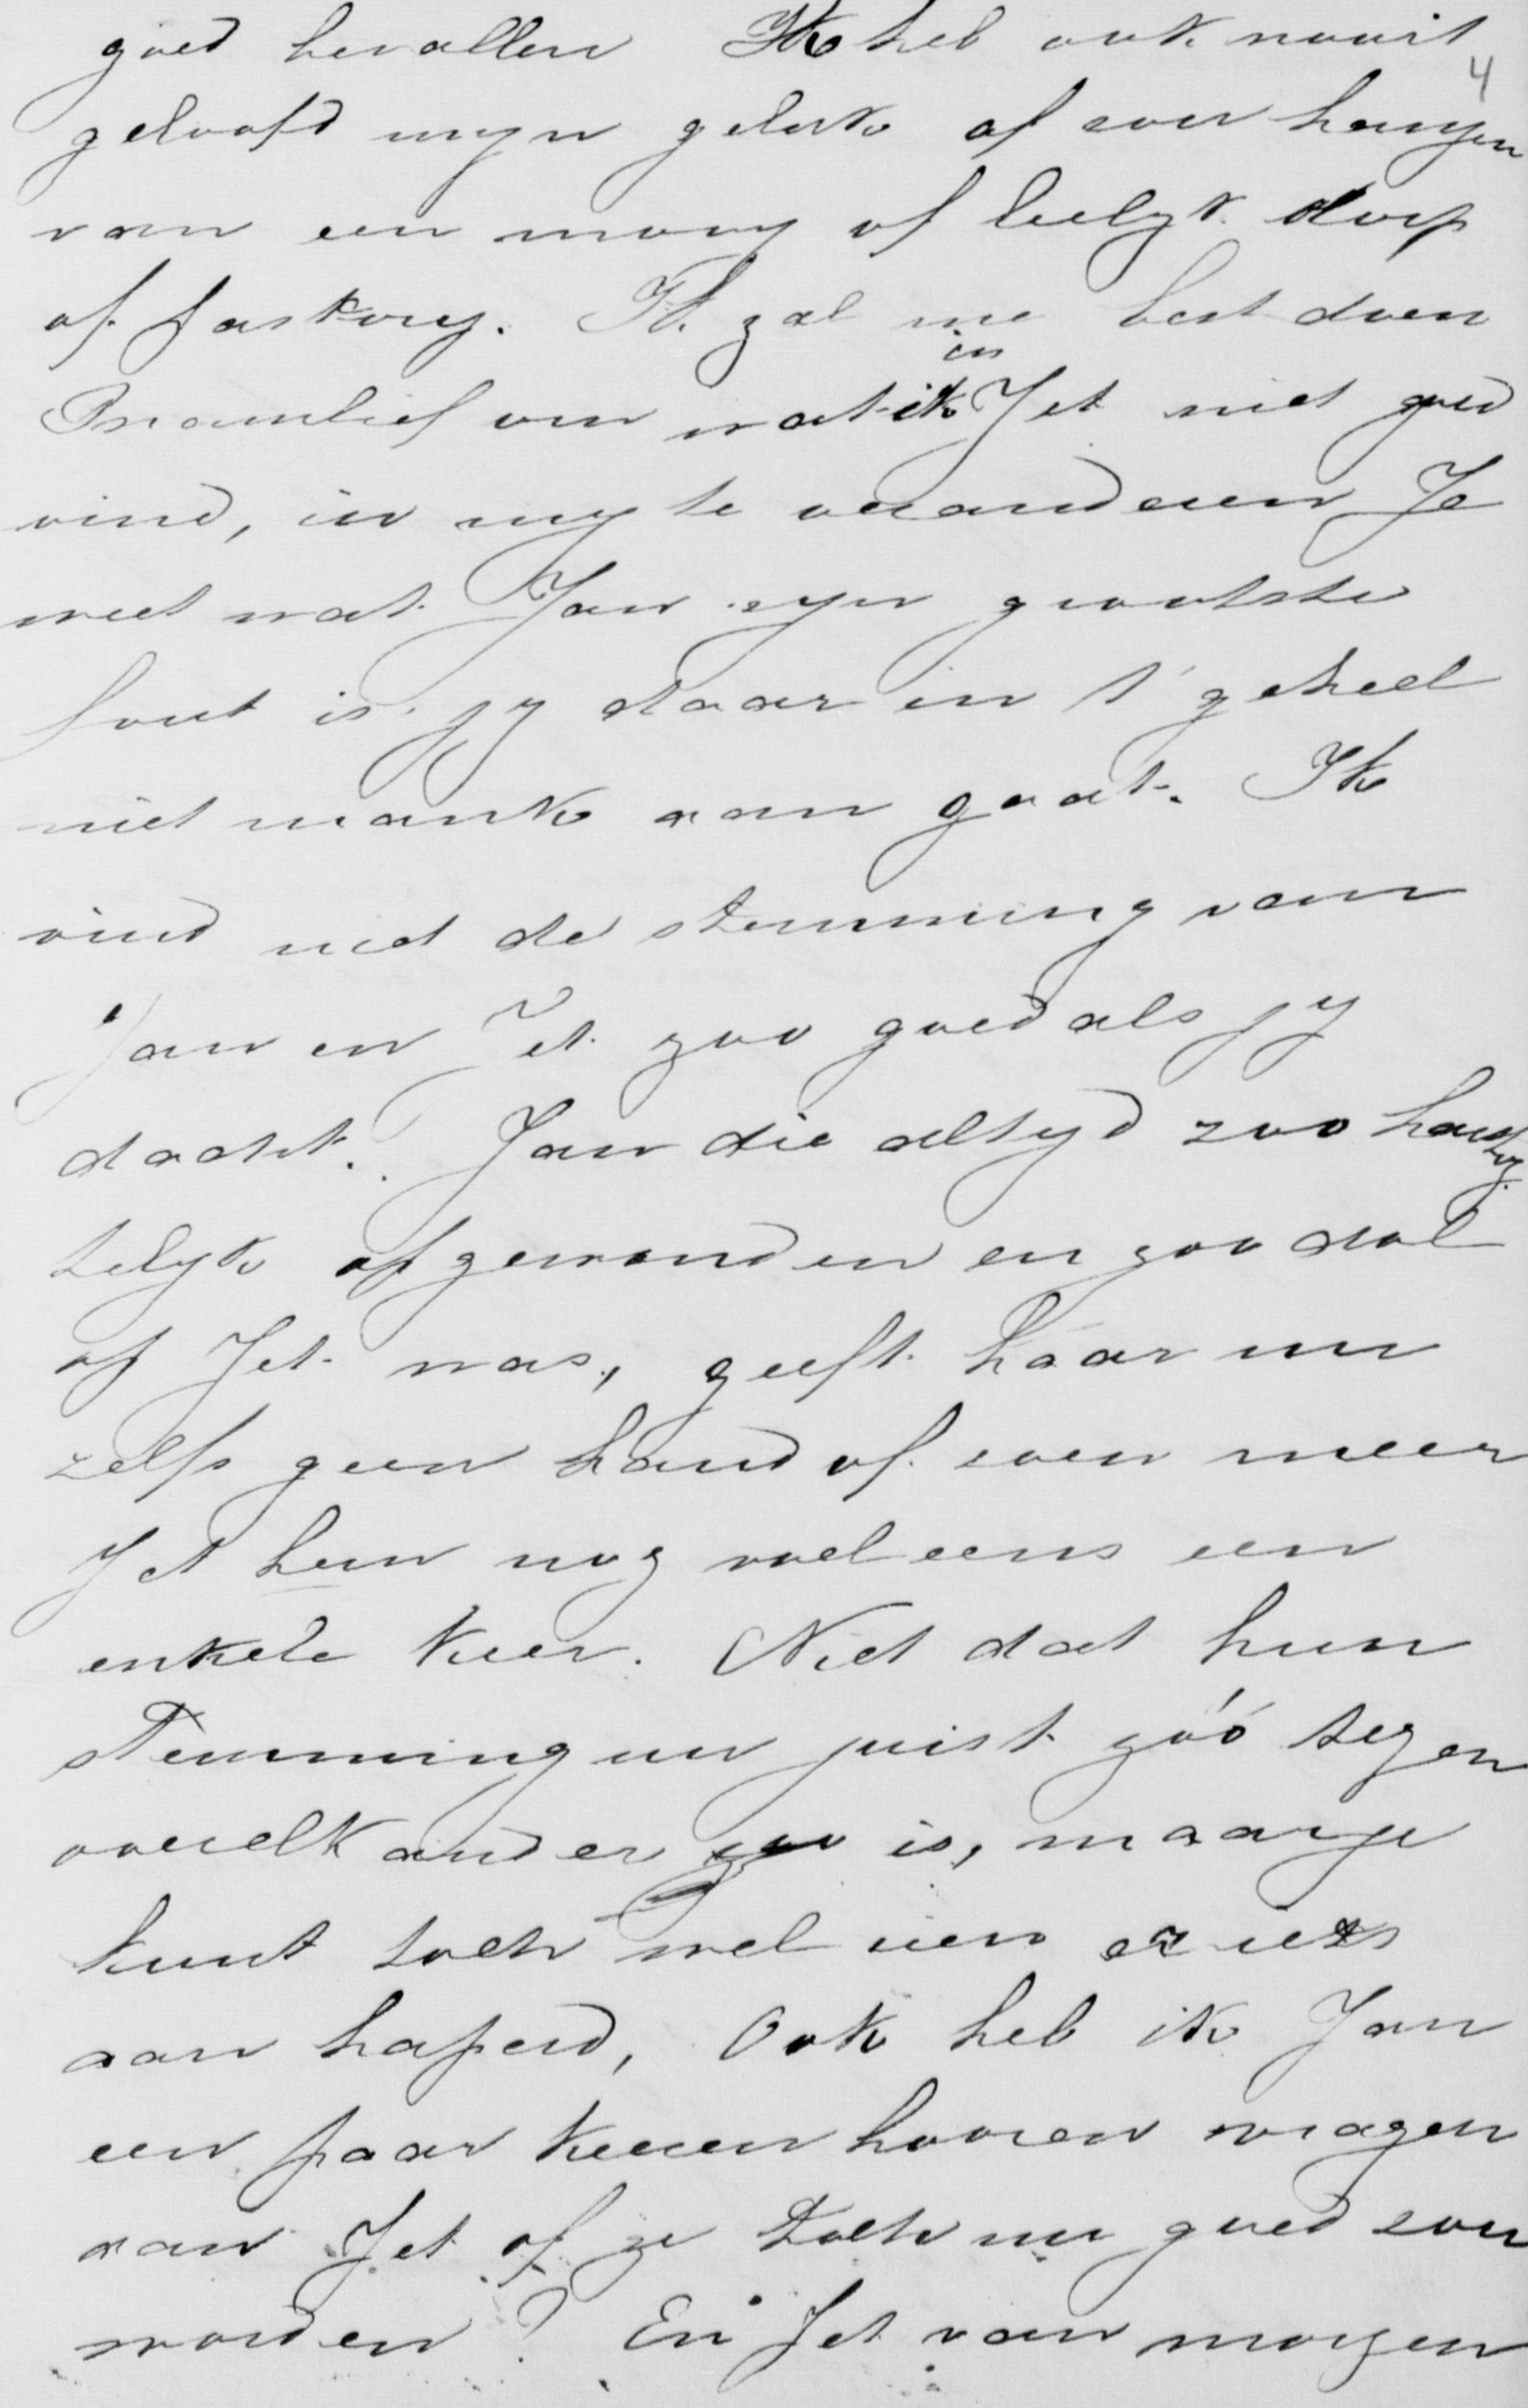 goed bevallen Ik heb ook nooit
4
geloofd myn geluk af zou hangen
van een mooy of leelyk dorp
of pastory. Ik zal me best doen
Bramlief om wat ik in Jet niet goed
vind, in my te veranderen Je
weet wat Jan zyn grootste
fout is. jy daar in 't geheel
niet mank aan gaat. Ik
vind niet de stemming van
Jan en Jet zoo goed als jy
dacht. Jan die altyd zoo harts tog
telyk opgewonden en zoo dol
op Jet was, geeft haar nu
zelfs geen hand of zoen meer
Jet hem nog wel eens een
enkele keer. Niet dat hun
stemming nu juist zóó tegen
overelkander zoo is, maar je
kunt toch wel zien er iets
aan haperd, Ook heb ik Jan
een paar keeren hooren vragen
aan Jet of ze toch nu goed zou
worden? En Jet van morgen